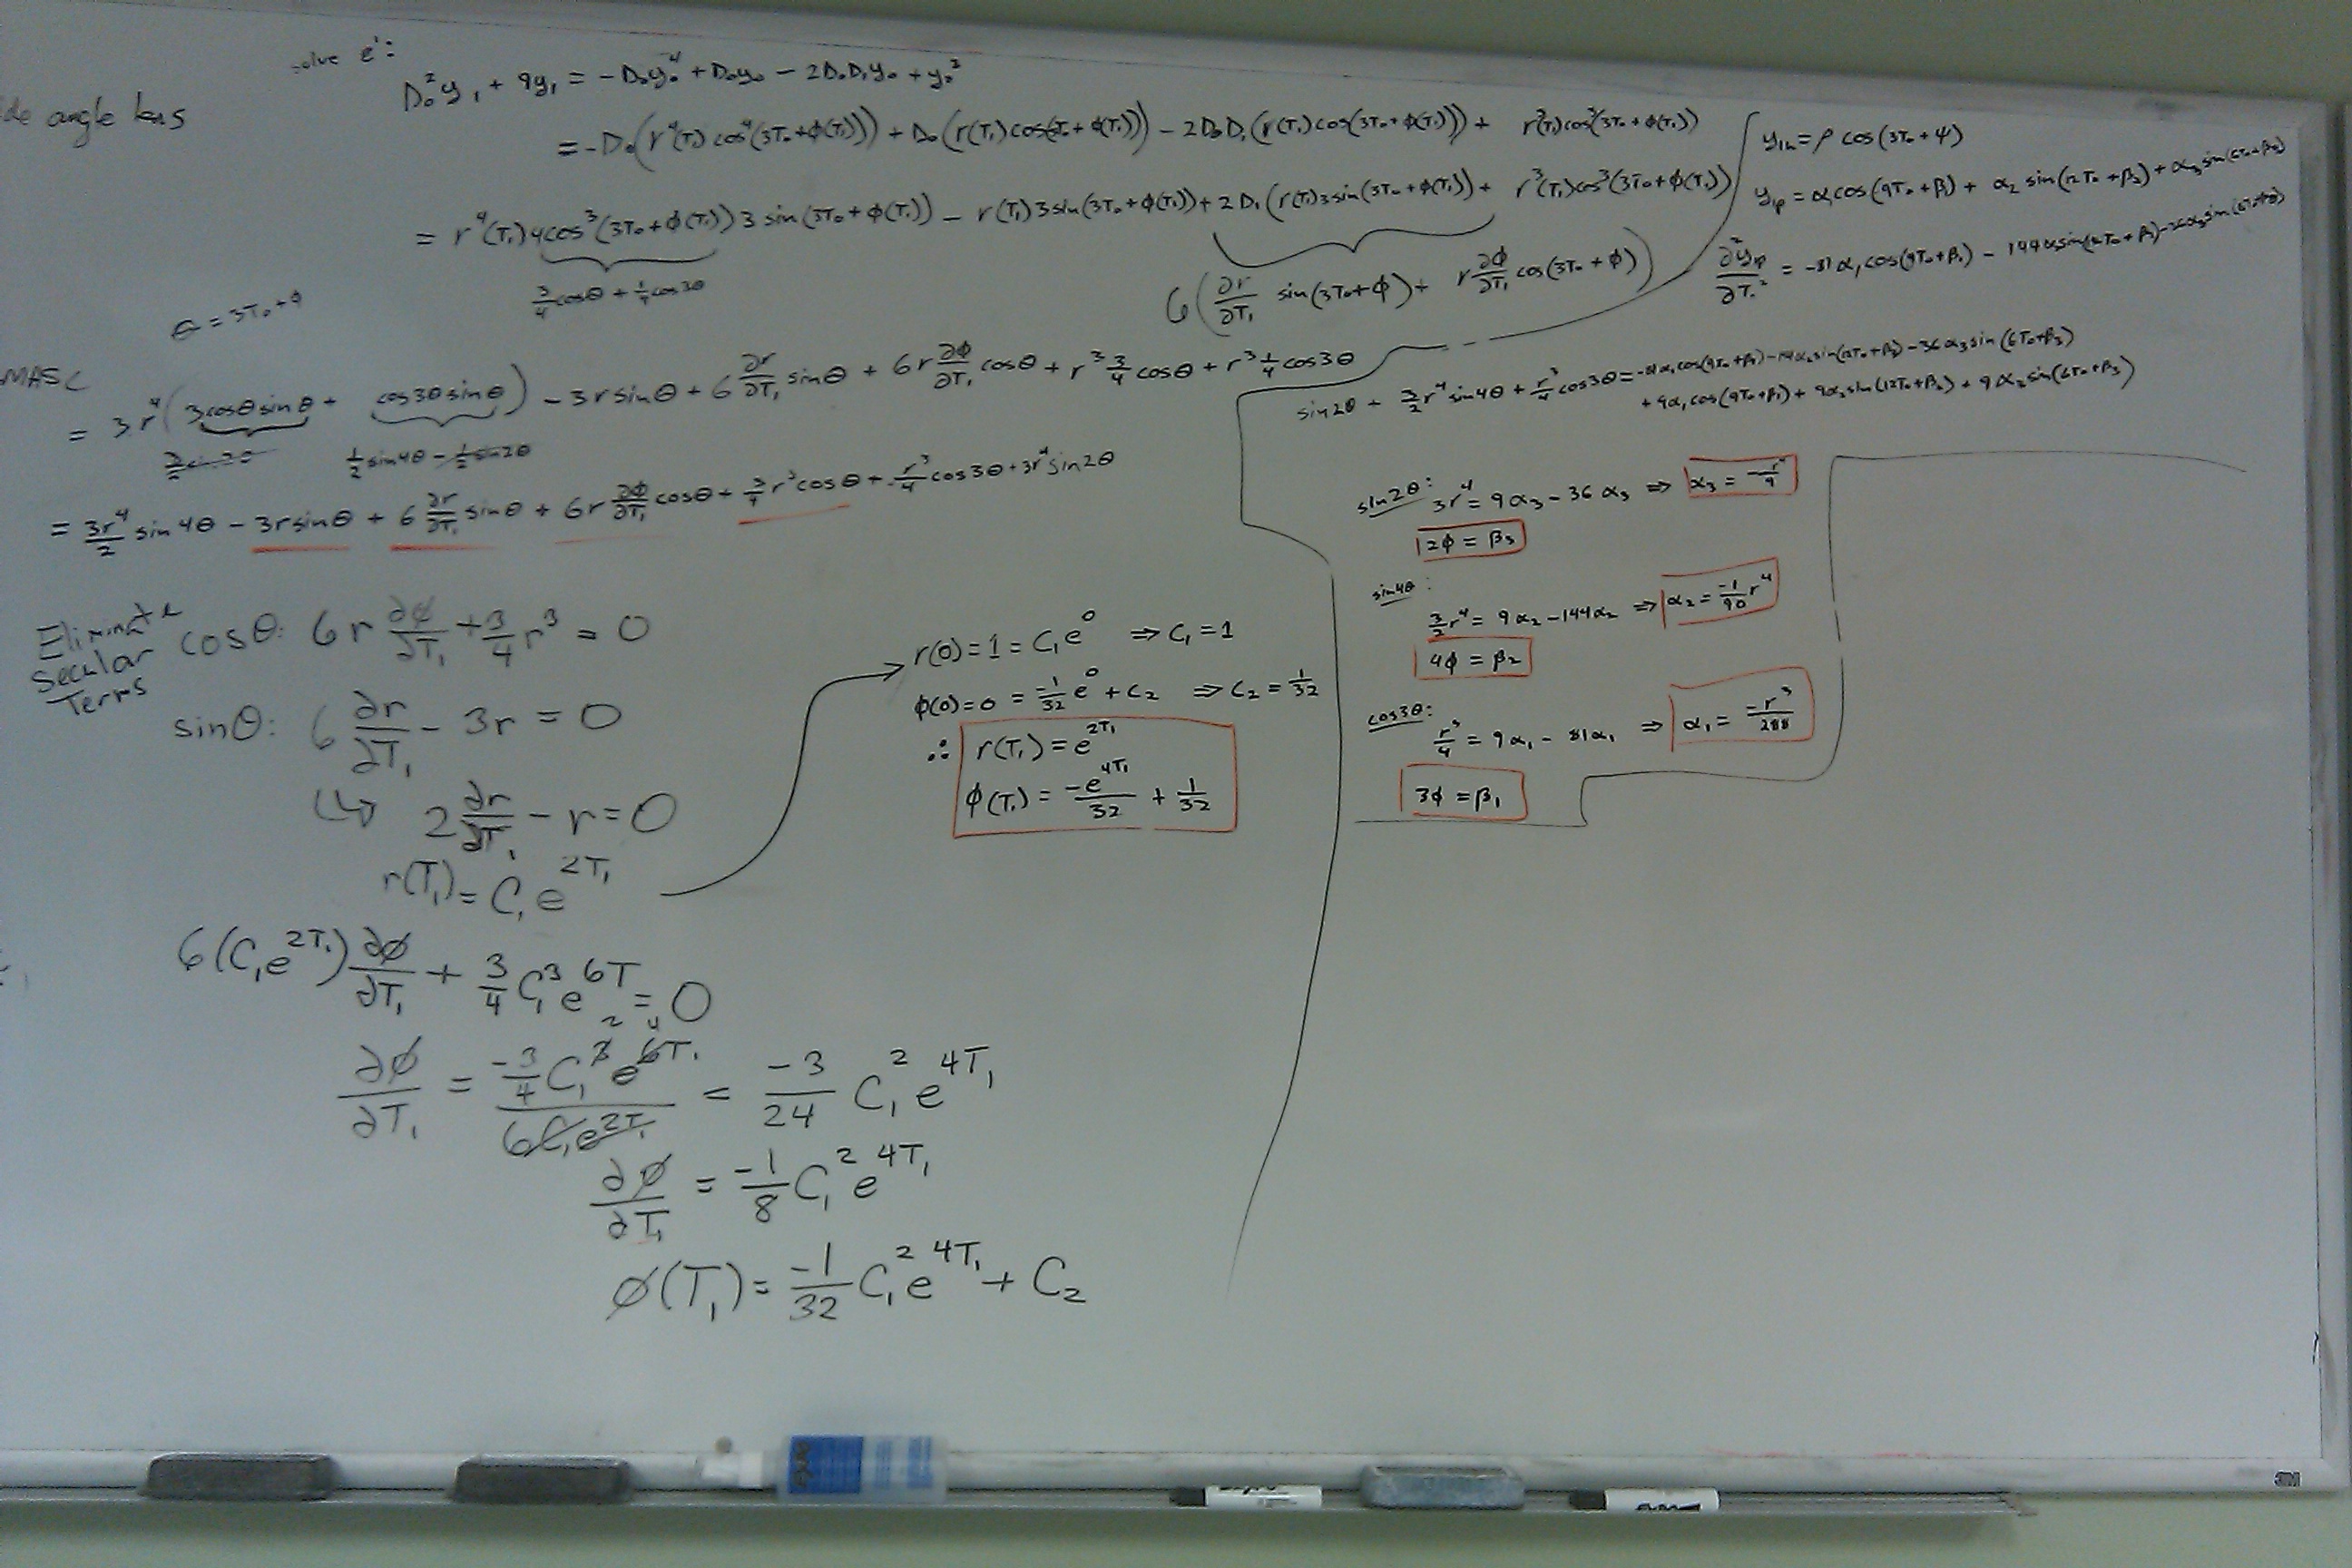 solve ε¹:
D₀²y₁ + 9y₁ = -D₀y₀⁴ + D₀y₀ - 2D₀D₁y₀ + y₀³
angle lens
= -D₀(r⁴(T₁) cos⁴(3T₀+φ(T₁))) + D₀(r(T₁)cos(3T₀+φ(T₁))) - 2D₀D₁(r(T₁)cos(3T₀+φ(T₁))) + r³(T₁)cos³(3T₀+φ(T₁))
= r⁴(T₁)4cos³(3T₀+φ(T₁))3 sin(3T₀+φ(T₁)) - r(T₁)3sin(3T₀+φ(T₁)) + 2D₁(r(T₁)3sin(3T₀+φ(T₁)) + r³(T₁)cos³(3T₀+φ(T₁))
3/4 cosθ + 1/4 cos3θ
6(∂r/∂T₁ sin(3T₀+φ) + r ∂φ/∂T₁ cos(3T₀+φ))
θ = 3T₀+φ
= 3r⁴(3cosθsinθ + cos3θsinθ) - 3rsinθ + 6 ∂r/∂T₁ sinθ + 6r ∂φ/∂T₁ cosθ + r³ 3/4 cosθ + r³ 1/4 cos3θ
1/2 sin4θ - 1/2 sin2θ
= 3r⁴/2 sin4θ - 3rsinθ + 6 ∂r/∂T₁ sinθ + 6r ∂φ/∂T₁ cosθ + 3/4 r³cosθ + r³/4 cos3θ + 3r⁴sin2θ
Eliminate
Secular
Terms
cosθ: 6r ∂φ/∂T₁ + 3/4 r³ = 0
sinθ: 6 ∂r/∂T₁ - 3r = 0
↳ 2 ∂r/∂T₁ - r = 0
r(T₁) = C₁e^(2T₁)
6(C₁e^(2T₁)) ∂φ/∂T₁ + 3/4 C₁³e^(6T) = 0
∂φ/∂T₁ = -3/4 C₁² e^(4T₁) / 6C₁e^(2T₁) = -3/24 C₁² e^(4T₁)
∂φ/∂T₁ = -1/8 C₁² e^(4T₁)
φ(T₁) = -1/32 C₁² e^(4T₁) + C₂
r(0) = 1 = C₁e⁰ ⇒ C₁ = 1
φ(0) = 0 = -1/32 e⁰ + C₂ ⇒ C₂ = 1/32
∴ r(T₁) = e^(2T₁)
φ(T₁) = -e^(4T₁)/32 + 1/32
y₁ₕ = ρ cos(3T₀+ψ)
y₁ₚ = α₁cos(9T₀+β₁) + α₂ sin(12T₀+β₂) + α₃sin(6T₀+β₃)
∂²y₁ₚ/∂T₀² = -81α₁cos(9T₀+β₁) - 144α₂sin(12T₀+β₂) - 36α₃sin(6T₀+β₃)
sin2θ + 3/2 r⁴ sin4θ + r³/4 cos3θ = -81α₁cos(9T₀+β₁) - 144α₂sin(12T₀+β₂) - 36α₃sin(6T₀+β₃)
+ 9α₁cos(9T₀+β₁) + 9α₂sin(12T₀+β₂) + 9α₂sin(6T₀+β₃)
sin2θ: 3r⁴ = 9α₃ - 36α₃ ⇒ α₃ = -r⁴/9
2φ = β₃
sin4θ:
3/2 r⁴ = 9α₂ - 144α₂ ⇒ α₂ = -1/90 r⁴
4φ = β₂
cos3θ:
r³/4 = 9α₁ - 81α₁ ⇒ α₁ = -r³/288
3φ = β₁
3M